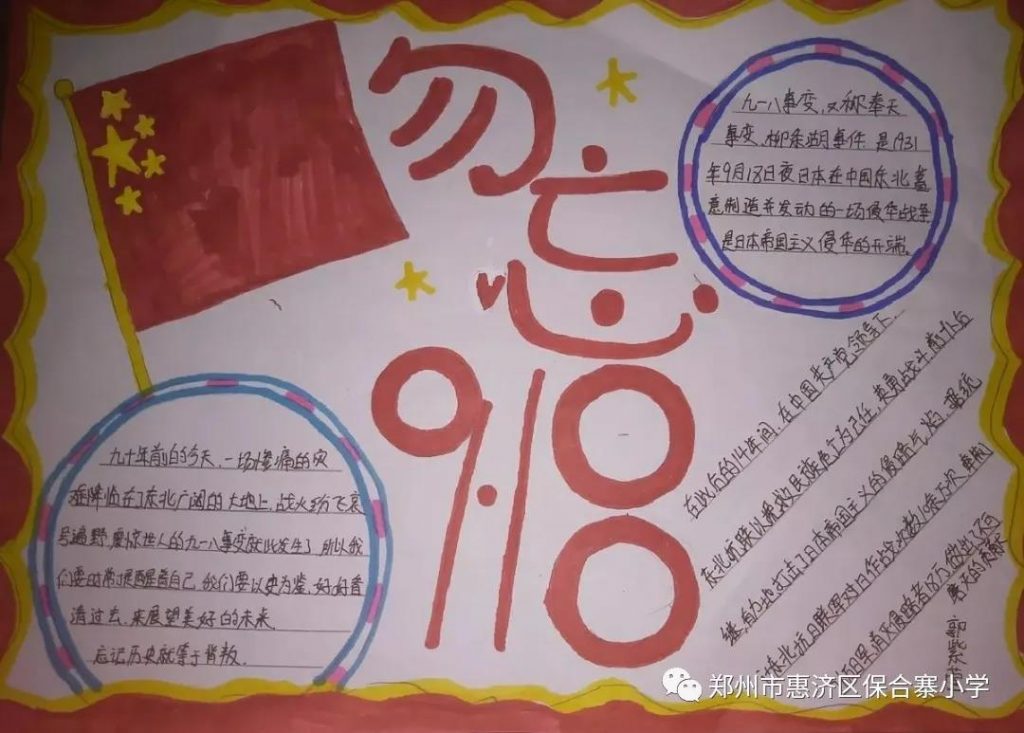 勿忘
9.18
九一八事变，又称奉天
事变、柳条湖事件是1931
年9月18日夜日本在中国东北蓄
意制造并发动的一场侵华战争
是日本帝国主义侵华的开端。
九十年前的今天，一场惨痛的灾
难降临在了东北广阔的大地上，战火纷飞哀
号遍野，震惊世人的九一八事变就此发生了，所以我
们要时常提醒着自己，我们要以史为鉴，好好看
清过去，来展望美好的未来
忘记历史就等于背叛．
在此后的14年间，在中国共产党领导下…
东北抗联以拯救民族危亡为己任，英勇战斗，前仆后
继，有力地打击了日本帝国主义的侵略气焰，据统
东北抗日联军对日作战次数
郑州市惠济区保合寨小学